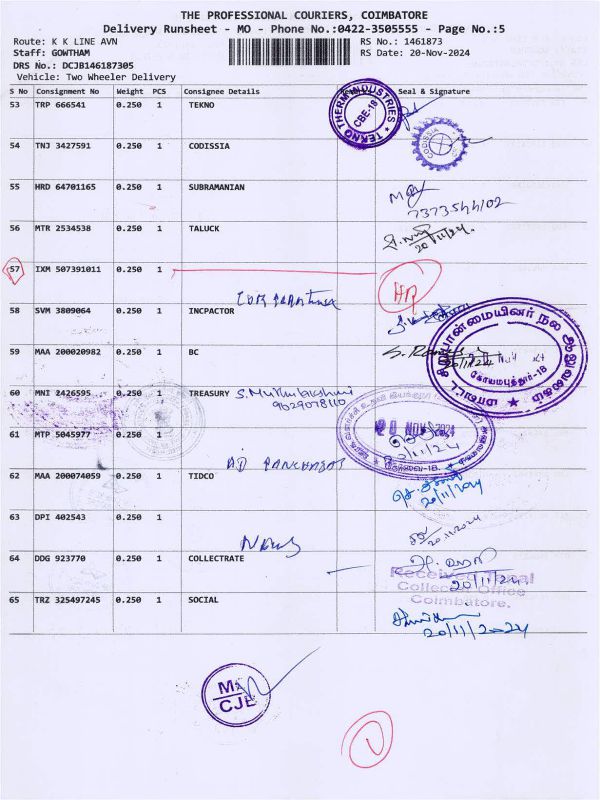 THE PROFESSIONAL COURIERS, COIMBATORE
Delivery Runsheet - MO - Phone No.:0422-3505555 - Page No.:5
Route: K K LINE AVN
RS No.: 1461873
Staff: GOWTHAM
RS Date: 20-Nov-2024
DRS No.: DCJB146187305
Vehicle: Two Wheeler Delivery
S No Consignment No Weight PCS Consignee Details Seal & Signature
53 TRP 666541 0.250 1 TEKNO
TEKNO THERM INDUSTRIES
CBE-18
54 TNJ 3427591 0.250 1 CODISSIA
CODISSIA
55 HRD 64701165 0.250 1 SUBRAMANIAN
7373544102
56 MTR 2534538 0.250 1 TALUCK
20/11/24.
57 IXM 507391011 0.250 1
58 SVM 3809064 0.250 1 INCPACTOR
59 MAA 200020982 0.250 1 BC
கோயமுத்தூர்-18
60 MNI 2426595 0.250 1 TREASURY
9029078110
20 NOV 2024
61 MTP 5045977 0.250 1
20/11/24
62 MAA 200074059 0.250 1 TIDCO
20/11/2024
63 DPI 402543 0.250 1
20.11.2024
64 DDG 923770 0.250 1 COLLECTRATE
20/11/24
Coimbatore.
65 TRZ 325497245 0.250 1 SOCIAL
20/11/2024